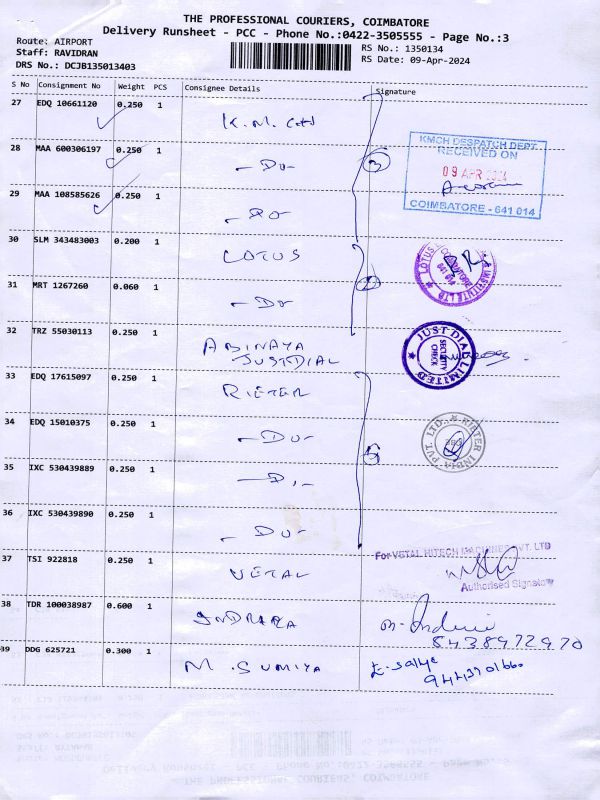 THE PROFESSIONAL COURIERS, COIMBATORE
Delivery Runsheet - PCC - Phone No.:0422-3505555 - Page No.:3
Route: AIRPORT
Staff: RAVIDRAN
DRS No.: DCJB135013403
RS No.: 1350134
RS Date: 09-Apr-2024
S No Consignment No Weight PCS Consignee Details Signature
27 EDQ 10661120 0.250 1 K.M.
28 MAA 600306197 0.250 1 -Do- 3
KMCH DESPATCH DEPT.
RECEIVED ON
09 APR 2024
COIMBATORE - 641 014
29 MAA 108585626 0.250 1 -Do-
30 SLM 343483003 0.200 1 LOTUS
31 MRT 1267260 0.060 1 -Do- 2
32 TRZ 55030113 0.250 1 ABINAYA
JUSTDIAL
JUST DIAL LIMITED
SECURITY
CHECK
33 EDQ 17615097 0.250 1 RIETER
34 EDQ 15010375 0.250 1 -Do-
RIETER INDIA PVT. LTD.
35 IXC 530439889 0.250 1 -D,-
36 IXC 530439890 0.250 1 -Do-
For VETAL HITECH MACHINES PVT. LTD
37 TSI 922818 0.250 1 VETAL
Authorised Signatory
38 TDR 100038987 0.600 1
8438972970
39 DDG 625721 0.300 1 M. SUMIYA